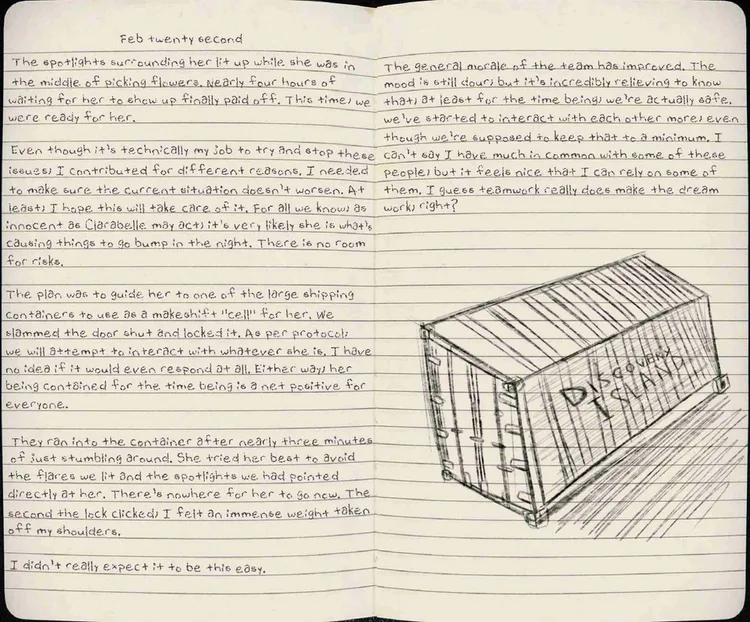 Feb twenty second
The spotlights surrounding her lit up while she was in
the middle of picking flowers. Nearly four hours of
waiting for her to show up finally paid off. This time, we
were ready for her.
Even though it's technically my job to try and stop these
issues, I contributed for different reasons. I needed
to make sure the current situation doesn't worsen. At
least, I hope this will take care of it. For all we know, as
innocent as Clarabelle may act, it's very likely she is what's
causing things to go bump in the night. There is no room
for risks.
The plan was to guide her to one of the large shipping
containers to use as a makeshift "cell" for her. We
slammed the door shut and locked it. As per protocol,
we will attempt to interact with whatever she is. I have
no idea if it would even respond at all. Either way, her
being contained for the time being is a net positive for
everyone..
They ran into the container after nearly three minutes
of just stumbling around. She tried her best to avoid
the flares we lit and the spotlights we had pointed
directly at her. There's nowhere for her to go now. The
second the lock clicked, I felt an immense weight taken
off my shoulders.
I didn't really expect it to be this easy.
The general morale of the team has improved. The
mood is still dour, but it's incredibly relieving to know
that, at least for the time being, we're actually safe.
We've started to interact with each other more, even
though we're supposed to keep that to a minimum. I
can't say I have much in common with some of these
people, but it feels nice that I can rely on some of
them. I guess teamwork really does make the dream
work, right?
DISCOVERY
ISLAND